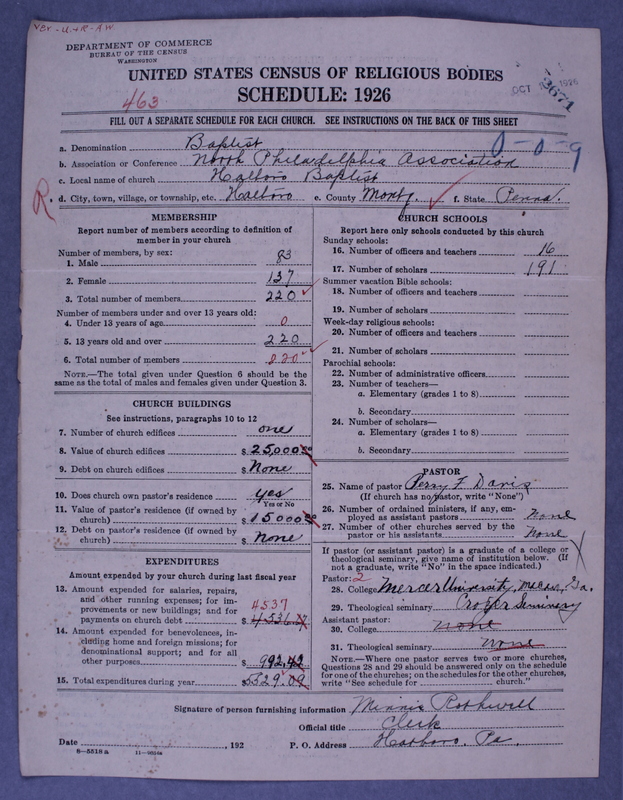 DEPARTMENT OF COMMERCE
BUREAU OF THE CENSUS
WASHINGTON
OCT 1926
UNITED STATES CENSUS OF RELIGIOUS BODIES
463
SCHEDULE: 1926
FILL OUT A SEPARATE SCHEDULE FOR EACH CHURCH. SEE INSTRUCTIONS ON THE BACK OF THIS SHEET
0-0-9
a. Denomination Baptist
b. Association or Conference North Philadelphia Association
c. Local name of church Hatboro Baptist
R. d. City, town, village, or township, etc. Hatboro e. County Montg. f. State Penna.
MEMBERSHIP
Report number of members according to definition of
member in your church
Number of members, by sex:
1. Male 83
2. Female 137
3. Total number of members 220
Number of members under and over 13 years old:
4. Under 13 years of age 0
5. 13 years old and over 220
6. Total number of members 220
NOTE.—The total given under Question 6 should be
same as the total of males and females given under Question 3.
CHURCH BUILDINGS
See instructions, paragraphs 10 to 12
7. Number of church edifices one
8. Value of church edifices $ 25,000.00
9. Debt on church edifices $ None
10. Does church own pastor's residence yes
Yes or No
11. Value of pastor's residence (if owned by
church) $ 5000.00
12. Debt on pastor's residence (if owned by
church) $ None
EXPENDITURES
Amount expended by your church during last fiscal year
13. Amount expended for salaries, repairs,
and other running expenses; for im-
provements or new buildings; and for 4537
payments on church debt $ 4536.
14. Amount expended for benevolences, in-
cluding home and foreign missions; for
denominational support; and for all
other purposes $ 992.42
15. Total expenditures during year $ 5529.09
CHURCH SCHOOLS
Report here only schools conducted by this church
Sunday schools:
16. Number of officers and teachers 16
17. Number of scholars 191
Summer vacation Bible schools:
18. Number of officers and teachers
19. Number of scholars
Week-day religious schools:
20. Number of officers and teachers
21. Number of scholars
Parochial schools:
22. Number of administrative officers
23. Number of teachers—
a. Elementary (grades 1 to 8)
b. Secondary
24. Number of scholars—
a. Elementary (grades 1 to 8)
b. Secondary
PASTOR
25. Name of pastor Perry F. Davis
(If church has no pastor, write "None")
26. Number of ordained ministers, if any, em-
ployed as assistant pastors None
27. Number of other churches served by the
pastor or his assistants None
If pastor (or assistant pastor) is a graduate of a college or
theological seminary, give name of institution below. (If
not a graduate, write "No" in the space indicated.)
Pastor: 2
28. College Mercer University, Macon, Ga.
29. Theological seminary Crozer Seminary
Assistant pastor:
30. College none
31. Theological seminary none
NOTE.—Where one pastor serves two or more churches,
Questions 28 and 29 should be answered only on the schedule
for one of the churches; on the schedules for the other churches,
write "See schedule for church."
Signature of person furnishing information Minnie Rothwell
Official title Clerk
Date , 192 P. O. Address Hatboro, Pa.
8—5518a